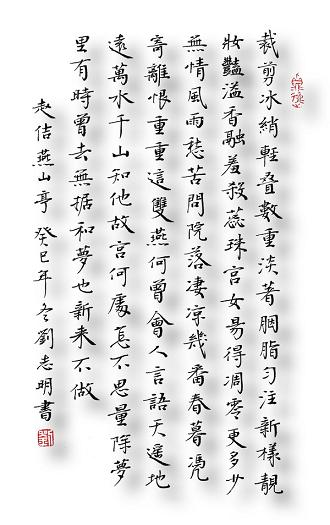 裁剪冰綃輕叠數重淡著胭脂匀注新樣靚
妝豔溢香融羞殺蕊珠宮女易得凋零更多少
無情風雨愁苦問院落凄涼幾番春暮凴
寄離恨重重這雙燕何曾會人言語天遥地
遠萬水千山知他故宮何處怎不思量除夢
里有時曾去無据和夢也新来不做
赵佶燕山亭 癸巳年冬劉志明書